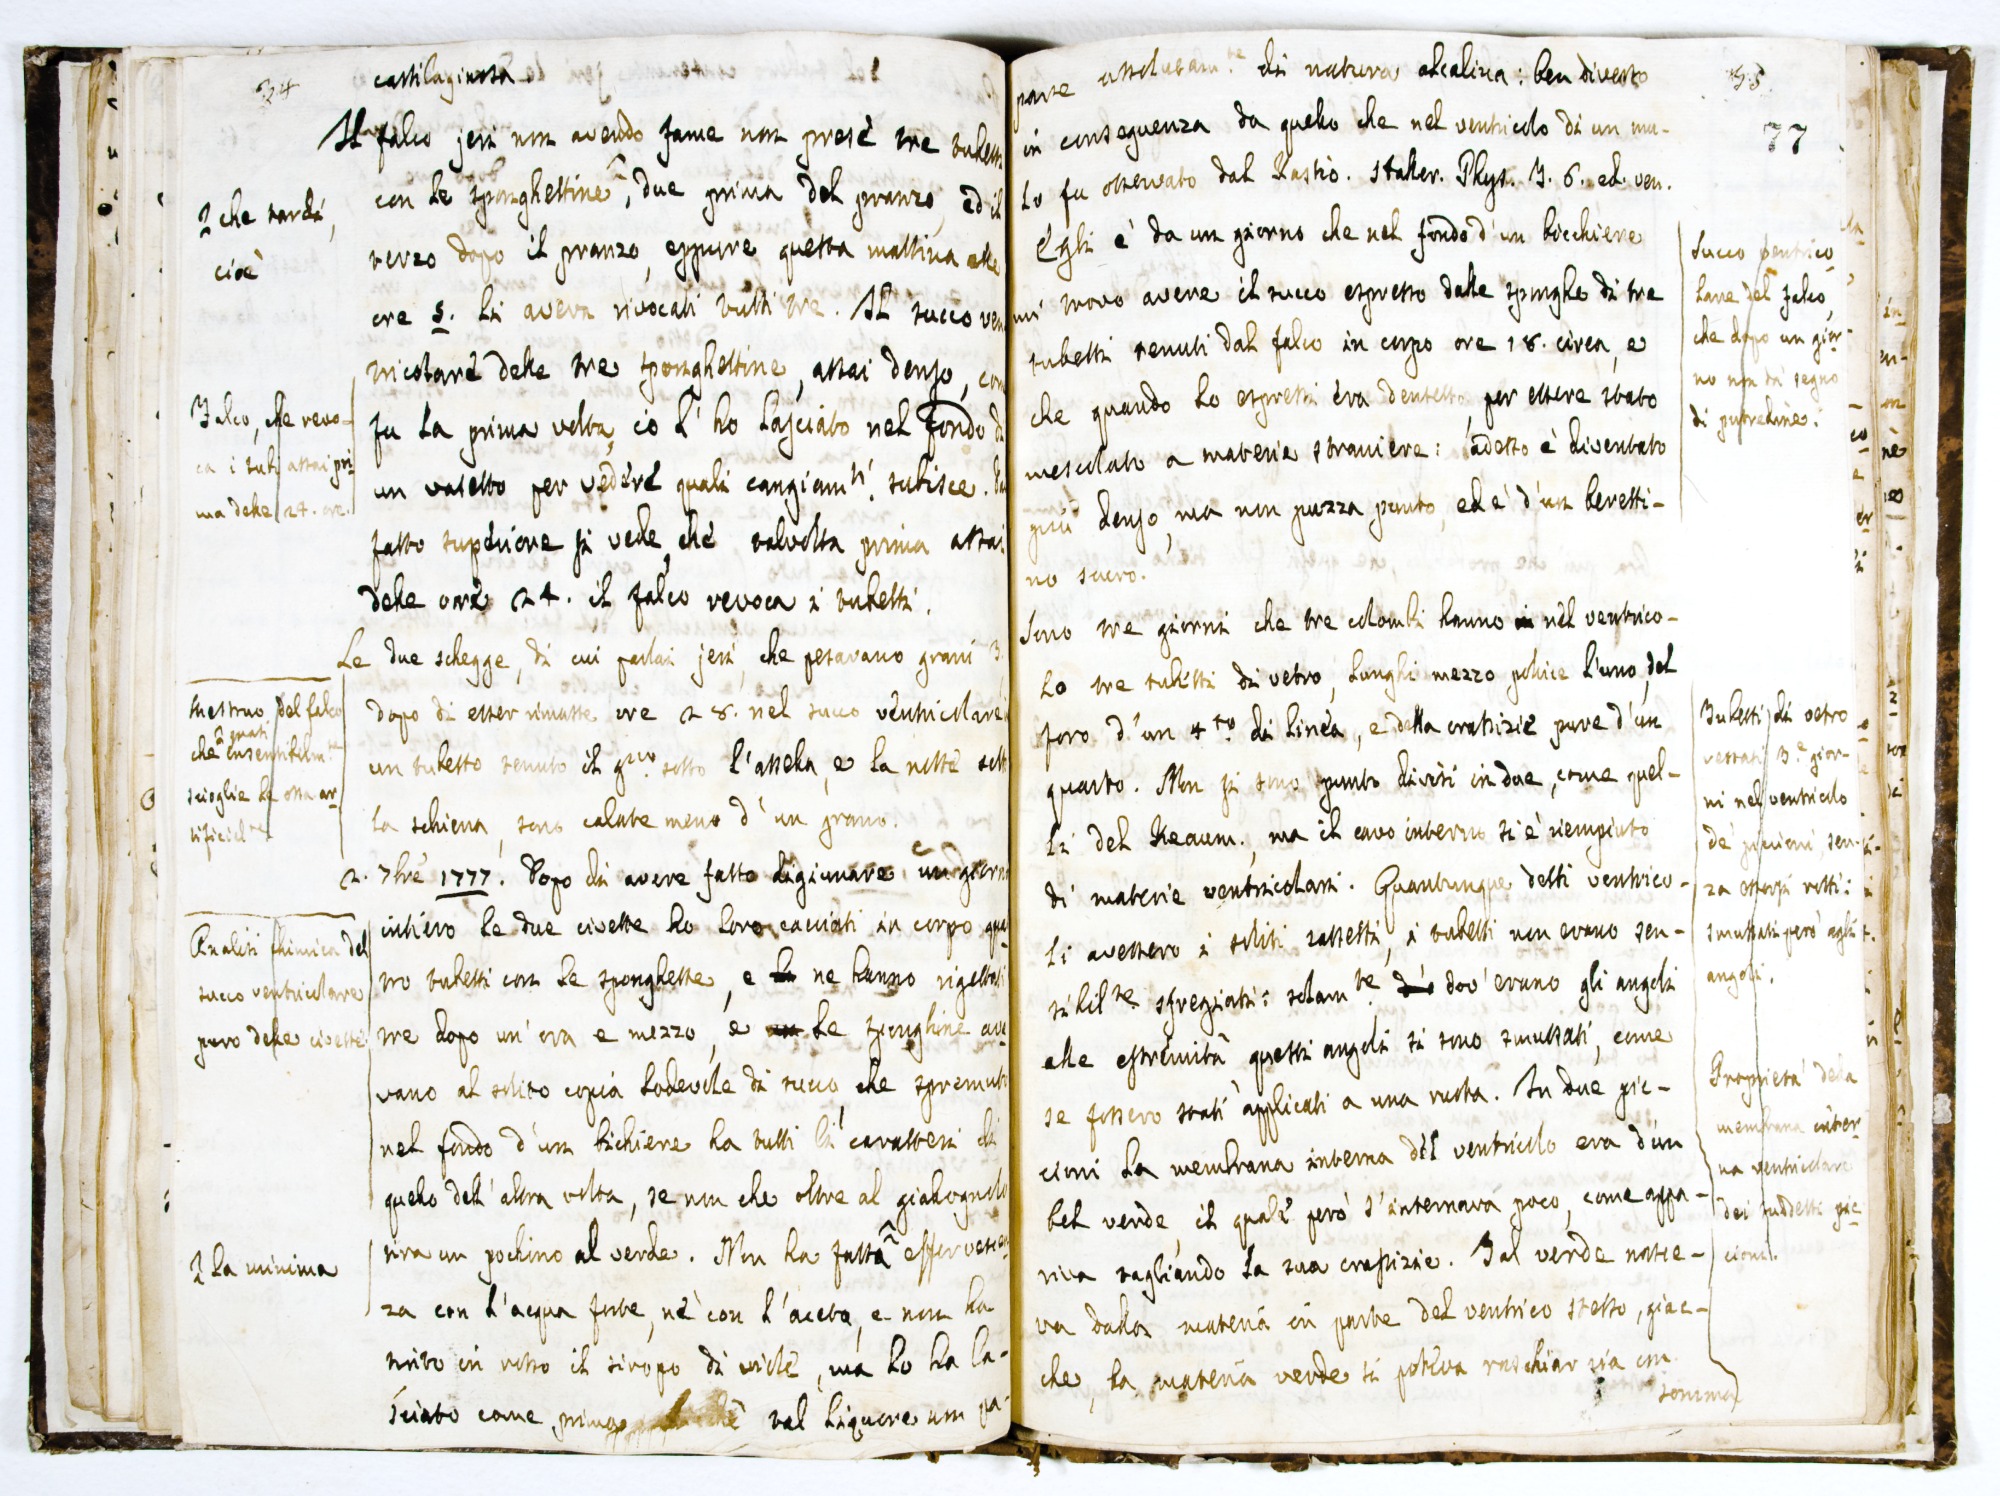 24
cartilaginosa
Il falco jeri non avendo fame non prese tre tubetti
con le sponghettine, due prima del pranzo, ed il
2 che tardi,
cioè
terzo dopo il pranzo, eppure questa mattina alle
ore 5. li aveva rivocati tutti tre. Il succo ven
tricolare delle tre sponghettine, assai denso, come
Falco, che revo-
ca i tubi assai pri
ma delle 24. ore.
fu la prima volta, io l'ho lasciato nel fondo di
un vasetto per vedere quali cangiamti. subisce. Dal
fatto superiore si vede, che talvolta prima assai
delle ore 24. il falco revoca i tubetti.
Le due schegge, di cui parlai jeri, che pesavano grani 3.
Mestruo del falco
che quasi insensibilmte
scioglie le ossa ar
tificialte
dopo di esser rimaste ore 28. nel succo ventricolare
un tubetto tenuto il gno. sotto l'ascella, e la notte sotto
la schiena, sono calate meno d'un grano.
2. 7bre 1777. Dopo di avere fatto digiunare un giorno
Analisi chimica del
succo ventriculare
puro delle civette
intiero le due civette ho loro cacciati in corpo quat
tro tubetti con le sponghette, e ne hanno rigettati
tre dopo un'ora e mezzo, e le sponghine ave
vano al solito copia lodevole di succo, che spremuto
nel fondo d'un bichiere ha tutti li caratteri di
quello dell'altra volta, se non che oltre al giallognolo
2 la minima
tira un pochino al verde. Non ha fatta effervescen
za con l'acqua forte, nè con l'aceto, e non ha
tinto in rosso il siropo di viole, ma lo ha la-
sciato come prima che tal liquore um pa-
75
77
parte assolutamte. di natura alcalina: ben diverso
in conseguenza da quello che nel ventricolo di un mu-
lo fu osservato dal Rastio. Haller. Phys. T. 6. ed. ven.
Egli è da un giorno che nel fondo d'un bicchiere
mi trovo avere il succo espresso dalle spunghe di tre
tubetti tenuti dal falco in corpo ore 18. circa, e
che quando lo espressi era densetto, per essere stato
mescolato a materie straniere: adesso è diventato
più denso, ma non puzza punto, ed è d'un beretti-
no scuro.
Succo ventrico
lare del falco,
che dopo un gior-
no non dà segno
di putredine.
Sono tre giorni che tre colombi hanno nel ventrico-
lo tre tubetti di vetro, lunghi mezzo pollice l'uno, del
foro d'un 4to. di linea, e della crassizie pure d'un
quarto. Non si sono punto divisi in due, come quel-
li del Reaum., ma il cavo interno si è riempiuto
di materie ventricolari. Quantunque detti ventrico-
li avessero i soliti sassetti, i tubetti non erano sen-
sibilte sfregiati: solamte. dov'erano gli angoli
alle estremità questi angoli si sono smussati, come
se fossero stati applicati a una ruota. In due pic-
cioni la membrana interna del ventricolo era d'un
bel verde, il quale però s'internava poco, come appa-
riva tagliando la sua crassizie. Tal verde nasce-
va dalla materia in parte del ventrico stesso, giac-
che, la materia verde si poteva raschiar via con
somma
Tubetti di vetro
restati 3e gior-
ni nel ventricolo
de' piccioni, sen-
za essersi rotti:
smussati però agli
angoli.
Proprietà della
membrana inter
na ventricolare
dei suddetti pic
cioni.